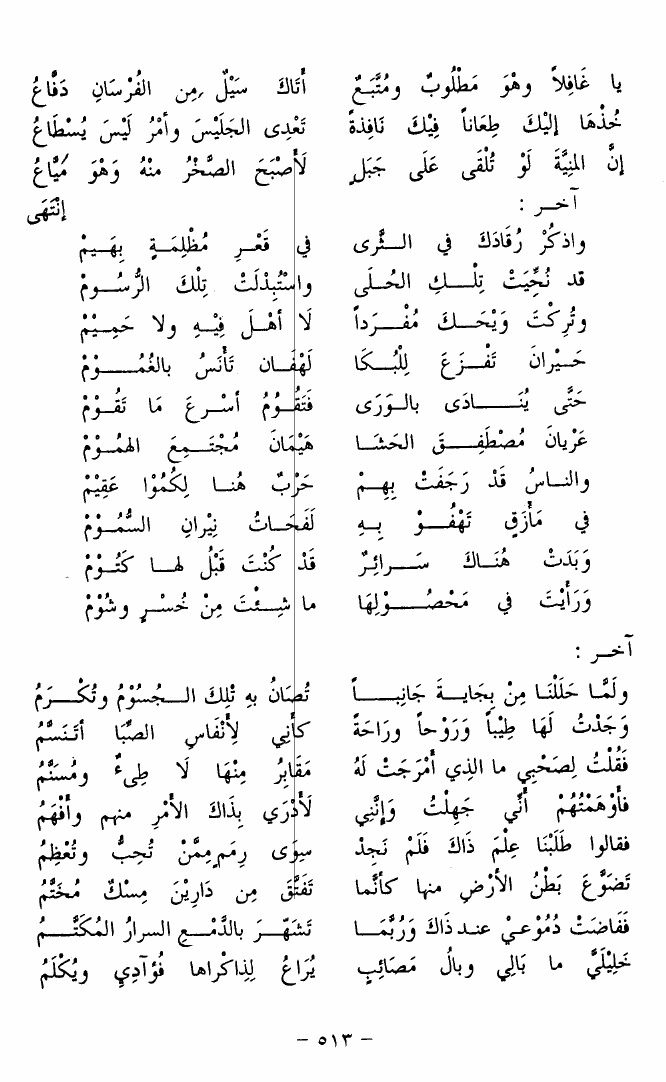 يا غَافِلاً وهْوَ مَطْلُوبٌ ومُتَّبَعٌ أَتَاكَ سَيْلٌ مِن الفُرْسَانِ دَفَّاعُ
خُذْهَا إلَيْكَ طِعَاناً فِيكَ نَافِذةً تَعْدِى الجَلِيْسَ وأمْرُ لَيْسَ يُسْطَاعُ
إنَّ المَنِيَّةَ لَوْ تُلْقَى عَلَى جَبَلٍ لَأَصْبَحَ الصَّخْرُ مِنْهُ وَهْوَ مَيَّاعُ
آخر : إنْتَهَى
واذكُرْ رُقَادَكَ في الثَّرى في قَعْرِ مُظْلِمَةٍ بِهَيمْ
قد نُحِّيَتْ تِلْكِ الحُلَى واسْتُبْدِلَتْ تِلْكَ الرُّسُومْ
وتُرِكْتَ وَيْحَكَ مُفْرَداً لَا أهْلَ فِيْهِ ولا حَمِيْمْ
حَيْرانَ تَفْزَعَ لِلْبُكَا لَهْفَان تَأْنَسُ بالغُمُوْمْ
حَتَّى يُنَادَى بالوَرَى فَتَقُوْمُ أسْرعَ مَا تَقُوْمْ
عَرْيانَ مُصْطَفِقَ الحَشَا هَيْمَانَ مُجْتَمِعَ الهمُوْمْ
والناسُ قَدْ رَجَفَتْ بِهِمْ حَرْبٌ هُنا لِكُمُوْا عَقِيْمْ
في مَأْزَقٍ تَهْفُوْ بِهِ لَفَحَاتُ نِيْرانِ السَّمُوْمْ
وَبَدَتْ هُنَاكَ سَرائِرٌ قَدْ كُنْتَ قَبْلُ لها كَتُوْمْ
وَرَأَيْتَ في مَحْصُوْلِهَا ما شِئْتَ مِنْ خُسْرٍ وشُوْمْ
آخر :
ولَمَّا حَلَلْنَا مِنْ بِجَايةَ جَانِباً تُصَانُ بهِ تْلِكَ الجُسُوْمُ وتُكْرَمُ
وَجَدْتُ لَهَا طِيْباً وَرَوْحاً ورَاحَةً كأني لِأَنْفَاسِ الصَّبَا أَتَنَسَّمُ
فَقُلْتُ لِصَحْبِي ما الذي أَمْرَجَتْ لَهُ مَقَابِرُ مِنْهَا لَا طِىءٌ ومُسَنَّمُ
فأوْهَمْتُهُمْ أنِّي جَهِلْتُ وَإنَّنِي لَأدْرِي بِذَاكَ الأمْرِ منهم وأفْهَمُ
فقالوا طَلَبْنَا عِلْمَ ذَاكَ فَلَمْ نَجِدْ سِوَى رِمَمٍ مِمَّنْ تُحِبُّ وتُعْظِمُ
تَضَوَّعَ بَطْنُ الأرْضِ منها كأنَّما تَفَتَّقَ مِن دَارِيْنَ مِسْكٌ مُخَتَّمُ
فَفَاضَتْ دُمُوْعيْ عند ذَاكَ وَرُبَّمَا تَشَهَّرَ بالدَّمْعِ السرارُ المُكَتَّمُ
خَلِيْلَيَّ ما بَالِي وبالُ مَصَائِبٍ يُرَاعُ لِذِاكْراها فُؤآدِي ويُكْلَمُ
- ٥١٣ -